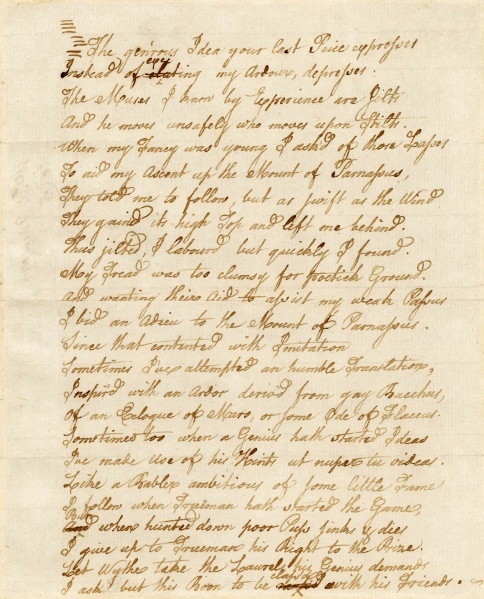 The gen'rous Idea your last Peice expresses
Instead of exciting my Ardour, depresses.
The Muses I know by Experience are Jilts
And he moves unsafely who moves upon Stilts.
When my Fancy was young I ask'd of those Lasses
To aid my Ascent up the Mount of Parnassus,
They told me to follow, but as swift as the Wind
They gain'd its high Top and left me behind.
Thus jilted, I labour'd but quickly I found.
My Tread was too clumsy for poetick Ground.
And wanting their Aid to assist my weak Passus
I bid an Adieu to the Mount of Parnassus.
Since that contented with Imitation
Sometimes I've attempted an humble Translation,
Inspir'd with an Ardor deriv'd from gay Bacchus,
Of an Eclogue of Maro, or some Ode of Flaccus.
Sometimes too when a Genius hath started Ideas
I've made Use of his Hints ut nuper tu videas.
Like a Babler ambitious of some little Fame
I follow when Trueman hath started the Game,
But when hunted down poor Puss jinks & dies
I give up to Trueman his Right to the Prize.
Let Wythe take the Laurel his Genius demands
I ask but this Boon to be class'd with his Friends.